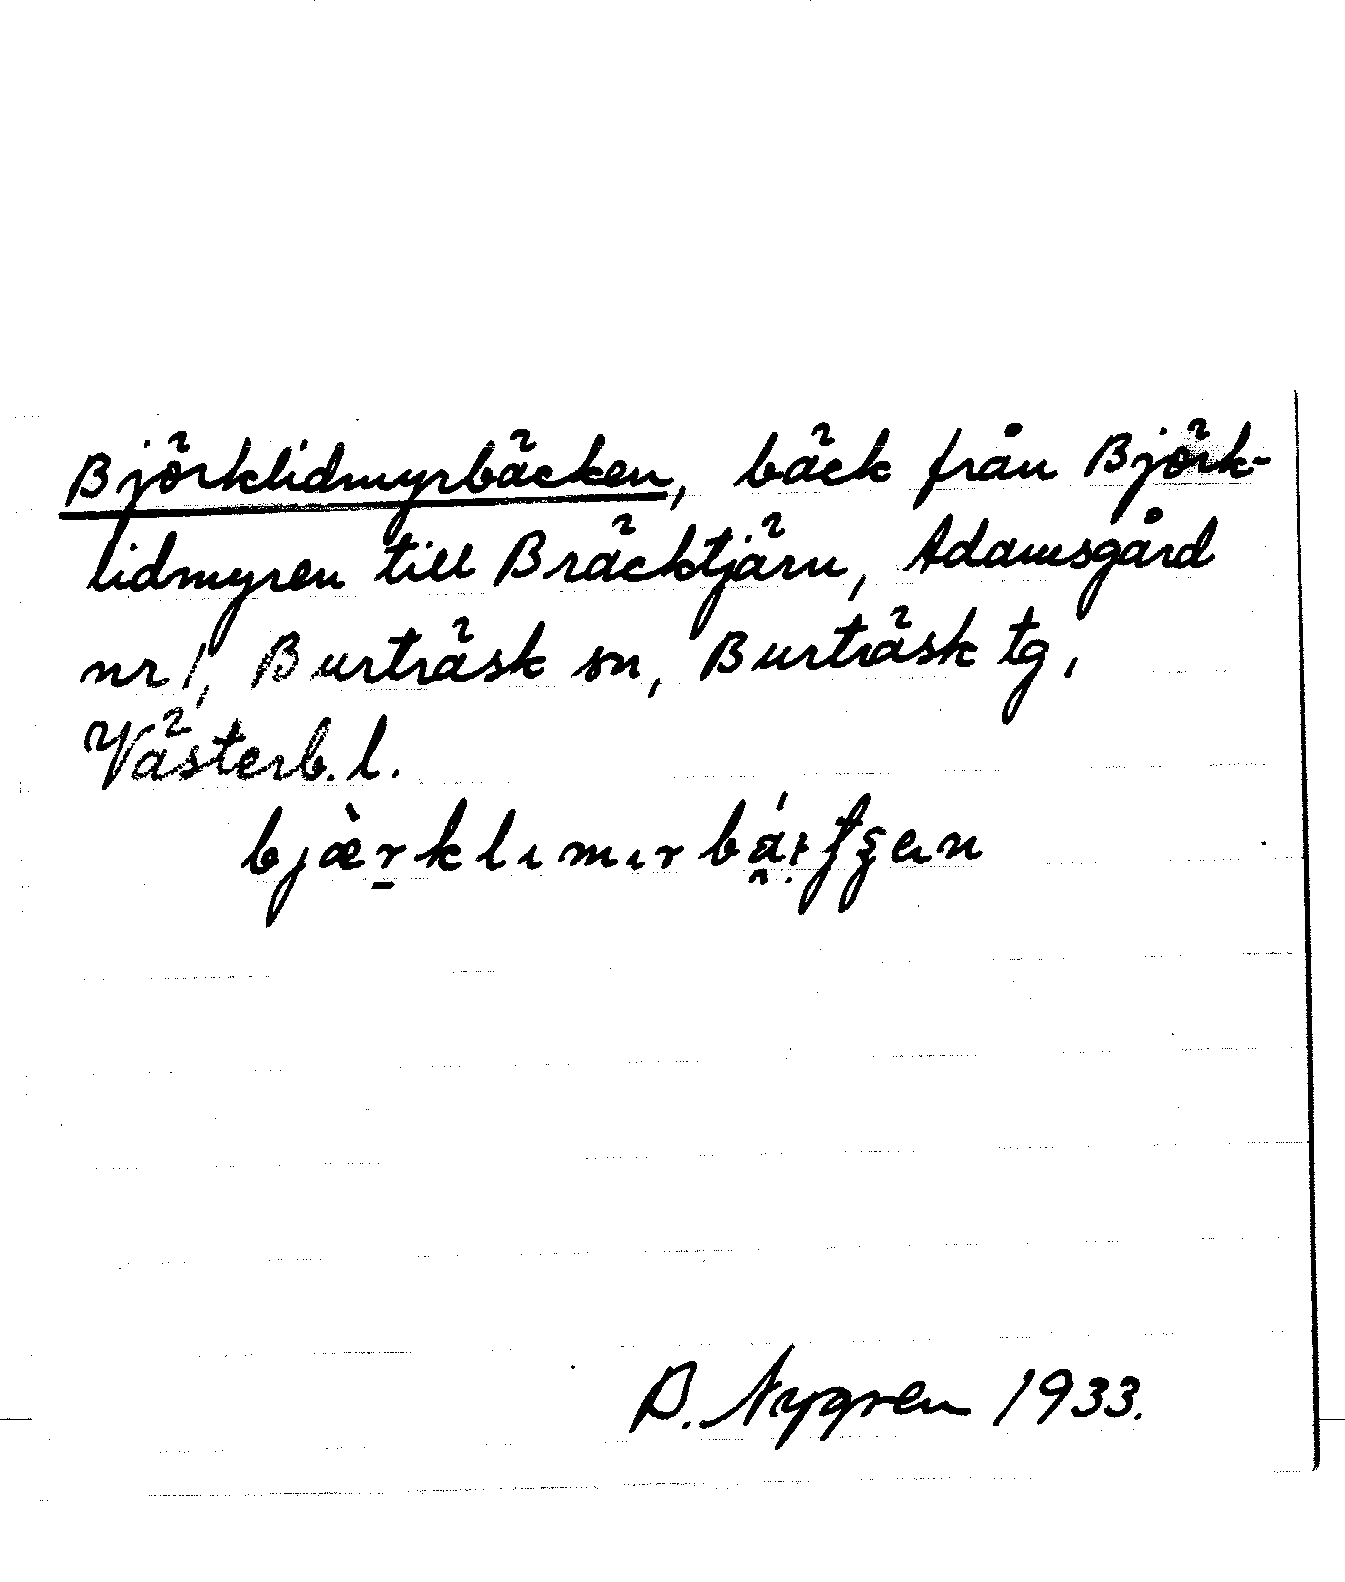 Björklidmyrbäcken, bäck från Björk-
lidmyren till Bräcktjärn, Adamsgård
nr 1, Burträsk sn, Burträsk tg,
Västerb. l.
B. Nygren 1933.